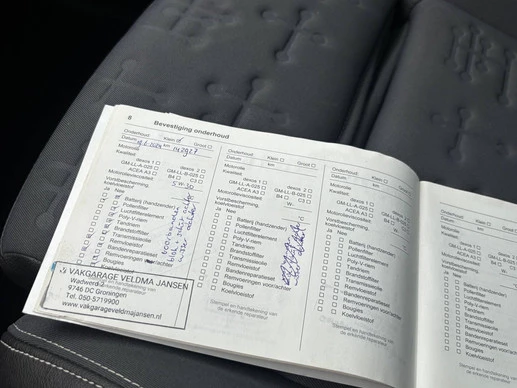 8 Bevestiging onderhoud
Onderhoud: Klein Groot
Datum km
Motorolie
Kwaliteit
dexos 1 dexos 2
GM-LL-A-025 GM-LL-B-025
ACEA A3 B4 C3
Motorolieviscositeit 5W-30
Vorstbescherming,
Koelvloeistof
Ja Nee
Batterij (handzender)
Pollenfilter
Luchtfilterelement
Poly-V-riem
Tandriem
Brandstoffilter
Transmissieolie
Remvloeistof
Bandenreparatieset
Remvoeringen voor/achter
Bougies
VAKGARAGE VELDMA JANSEN
9746 DC Groningen
Tel. 050-5719900
www.vakgarageveldmajansen.nl
Onderhoud: Klein Groot
Datum km
Motorolie
Kwaliteit
dexos 1 dexos 2
GM-LL-A-025 GM-LL-B-025
ACEA A3 B4 C3
Motorolieviscositeit W-
Vorstbescherming,
Koelvloeistof
Ja Nee
Batterij (handzender)
Pollenfilter
Luchtfilterelement
Poly-V-riem
Tandriem
Brandstoffilter
Transmissieolie
Remvloeistof
Bandenreparatieset
Remvoeringen voor/achter
Bougies
Koelvloeistof
Stempel en handtekening van
de erkende reparateur
Onderhoud: Klein Groot
Datum km
Motorolie
Kwaliteit
dexos 1 dexos 2
GM-LL-A-025 GM-LL-B-025
ACEA A3 B4 C3
Motorolieviscositeit W-
Vorstbescherming,
Koelvloeistof
Ja Nee
Batterij (handzender)
Pollenfilter
Luchtfilterelement
Poly-V-riem
Tandriem
Brandstoffilter
Transmissieolie
Remvloeistof
Bandenreparatieset
Remvoeringen voor/achter
Bougies
Koelvloeistof
Stempel en handtekening van
de erkende reparateur
Onderhoud: Klein
Datum km
Motorolie
Kwaliteit
dexos 1
GM-LL-A-025
ACEA A3
Motorolieviscositeit
Vorstbescherming,
Koelvloeistof
Ja Nee
Batterij (handzender)
Pollenfilter
Luchtfilterelement
Poly-V-riem
Tandriem
Brandstoffilter
Transmissieolie
Remvloeistof
Bandenreparatieset
Remvoeringen voor/achter
Bougies
Koelvloeistof